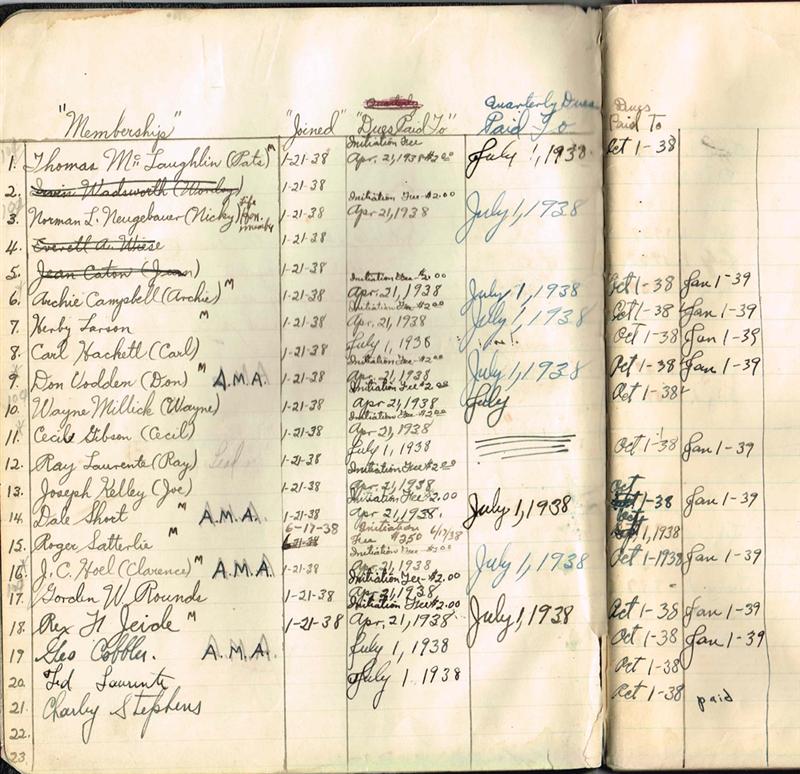 Quarterly Dues
"Membership" "Joined" "Dues Paid To" Paid To Dues Paid To
1. Thomas McLaughlin (Pats) M 1-21-38 Initiation Fee Apr. 21, 1938 $2.00 July 1, 1938 Oct 1-38
2. Irvin Wadsworth 1-21-38
3. Norman L. Neugebauer (Nicky) Life Hon. memb 1-21-38 Initiation Fee-$2.00 Apr 21, 1938 July 1, 1938
4. Everett A. Wiese 1-21-38
5. Jean Caton (Jean) 1-21-38
6. Archie Campbell (Archie) M 1-21-38 Initiation Fee-$2.00 Apr. 21, 1938 July 1, 1938 Oct 1-38 Jan 1-39
7. Herby Larson M 1-21-38 Initiation Fee $2.00 Apr. 21, 1938 July 1, 1938 Oct 1-38 Jan 1-39
8. Carl Hackett (Carl) 1-21-38 July 1, 1938 Oct 1-38 Jan 1-39
9. Don Vodden (Don) M A.M.A. 1-21-38 Initiation Fee $2.00 Apr. 21, 1938 July 1, 1938 Oct 1-38 Jan 1-39
10. Wayne Millick (Wayne) 1-21-38 Initiation Fee $2.00 Apr 21, 1938 July Oct 1-38
11. Cecil Gibson (Cecil) 1-21-38 Initiation Fee $2.00 Apr. 21, 1938
12. Ray Laurente (Ray) 1-21-38 July 1, 1938 Oct 1-38 Jan 1-39
13. Joseph Kelley (Joe) 1-21-38 Initiation Fee $2.00 Apr. 21, 1938
14. Dale Short M A.M.A. 1-21-38 Initiation Fee $2.00 Apr 21, 1938. July 1, 1938 Oct 1-38 Jan 1-39
15. Roger Satterlie M 6-17-38 Initiation Fee $2.50 6/17/38 1, 1938
16. J. C. Hoel (Clarence) M A.M.A. 1-21-38 Initiation Fee-$2.00 Apr 21, 1938 July 1, 1938 Oct 1-1938 Jan 1-39
17. Gordon W. Rounds 1-21-38 Initiation Fee-$2.00 Apr. 21, 1938
18. Rex H Jeide M 1-21-38 Initiation Fee $2.00 Apr. 21, 1938 July 1, 1938 Oct 1-38 Jan 1-39
19 Geo Cobbler. A.M.A. July 1, 1938 Oct 1-38 Jan 1-39
20. Ted Laurente July 1. 1938 Oct 1-38
21. Charley Stephens Oct 1-38 paid
22.
23.